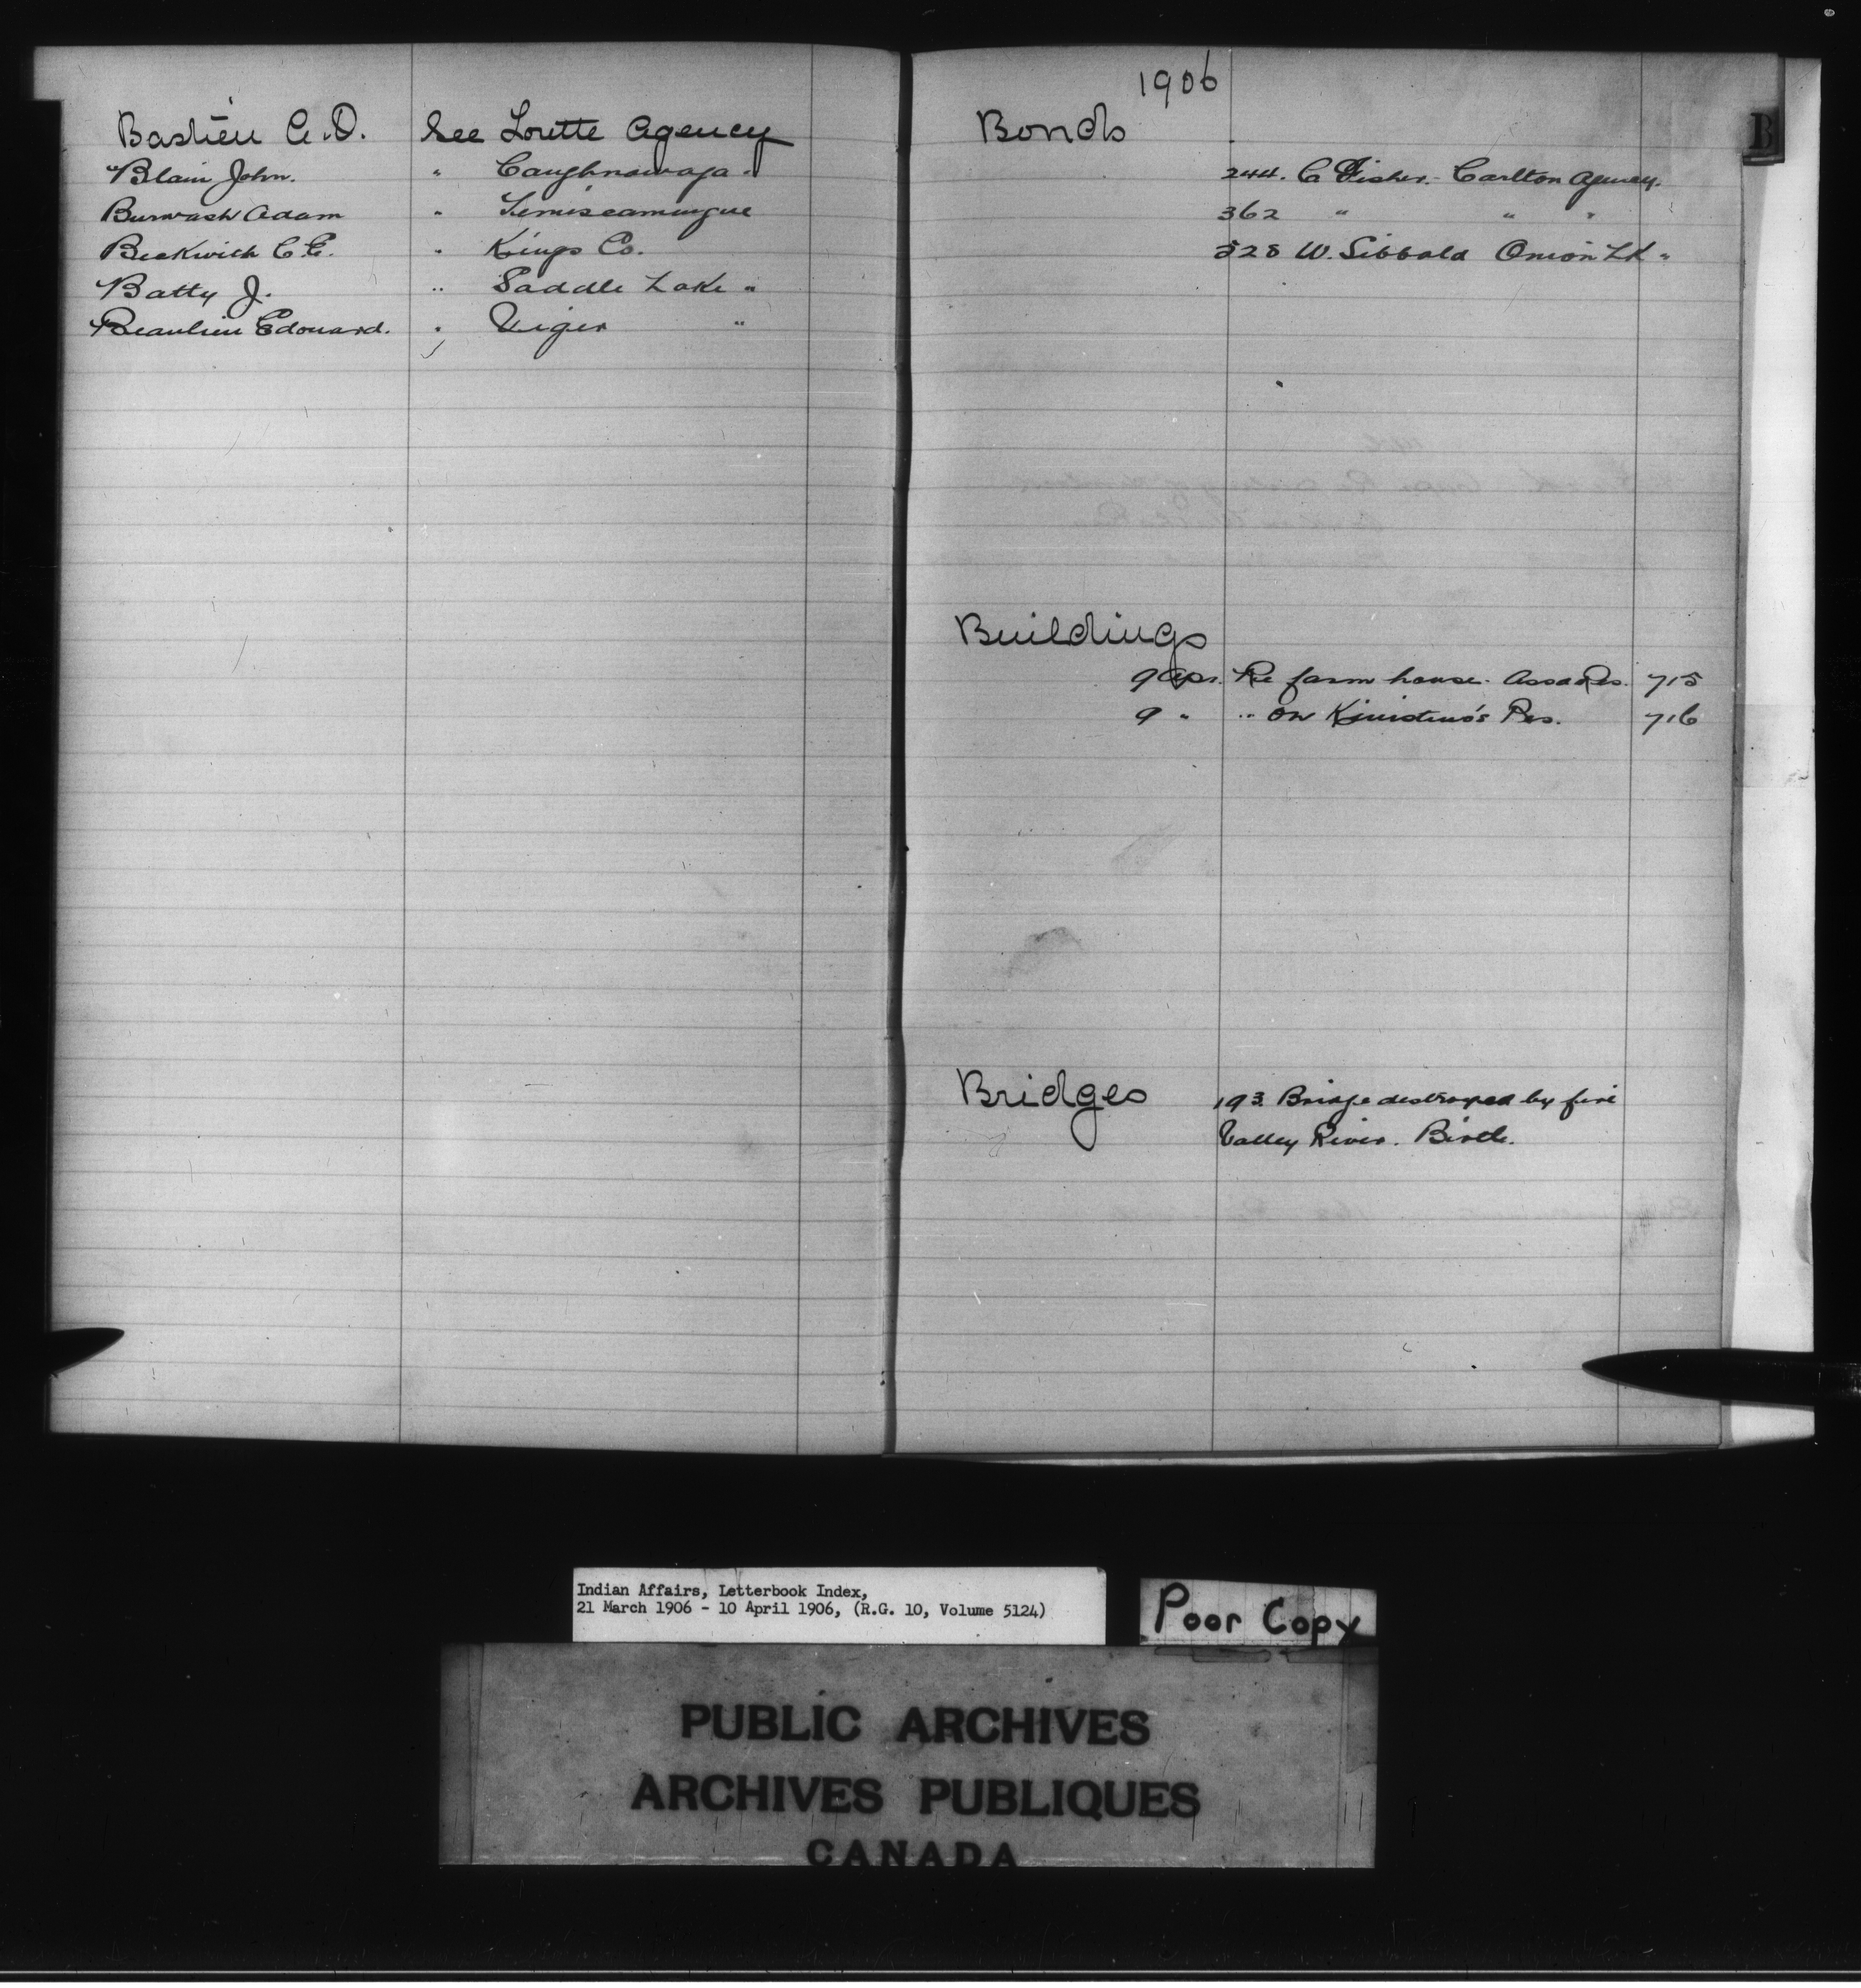 Bastien A.O. See Lorette Agency
Blain John. " Caughnawaga "
Burwash Adam " Temiscamingue
Beckwith C.E. " Kings Co.
Batty J. " Saddle Lake "
Beaulieu Edouard. " Viger "
1906
Bonds
244. C Fisher. Carlton Agency.
362 " " "
528 W. Sibbald Onion Lk "
B
Buildings
9 Apr. Re farm house. Assa Res. 715
9 " " on Kinistino's Res. 716
Bridges 193. Bridge destroyed by fire
Valley River. Birtle.
Indian Affairs, Letterbook Index,
21 March 1906 - 10 April 1906, (R.G. 10, Volume 5124)
Poor Copy
PUBLIC ARCHIVES
ARCHIVES PUBLIQUES
CANADA